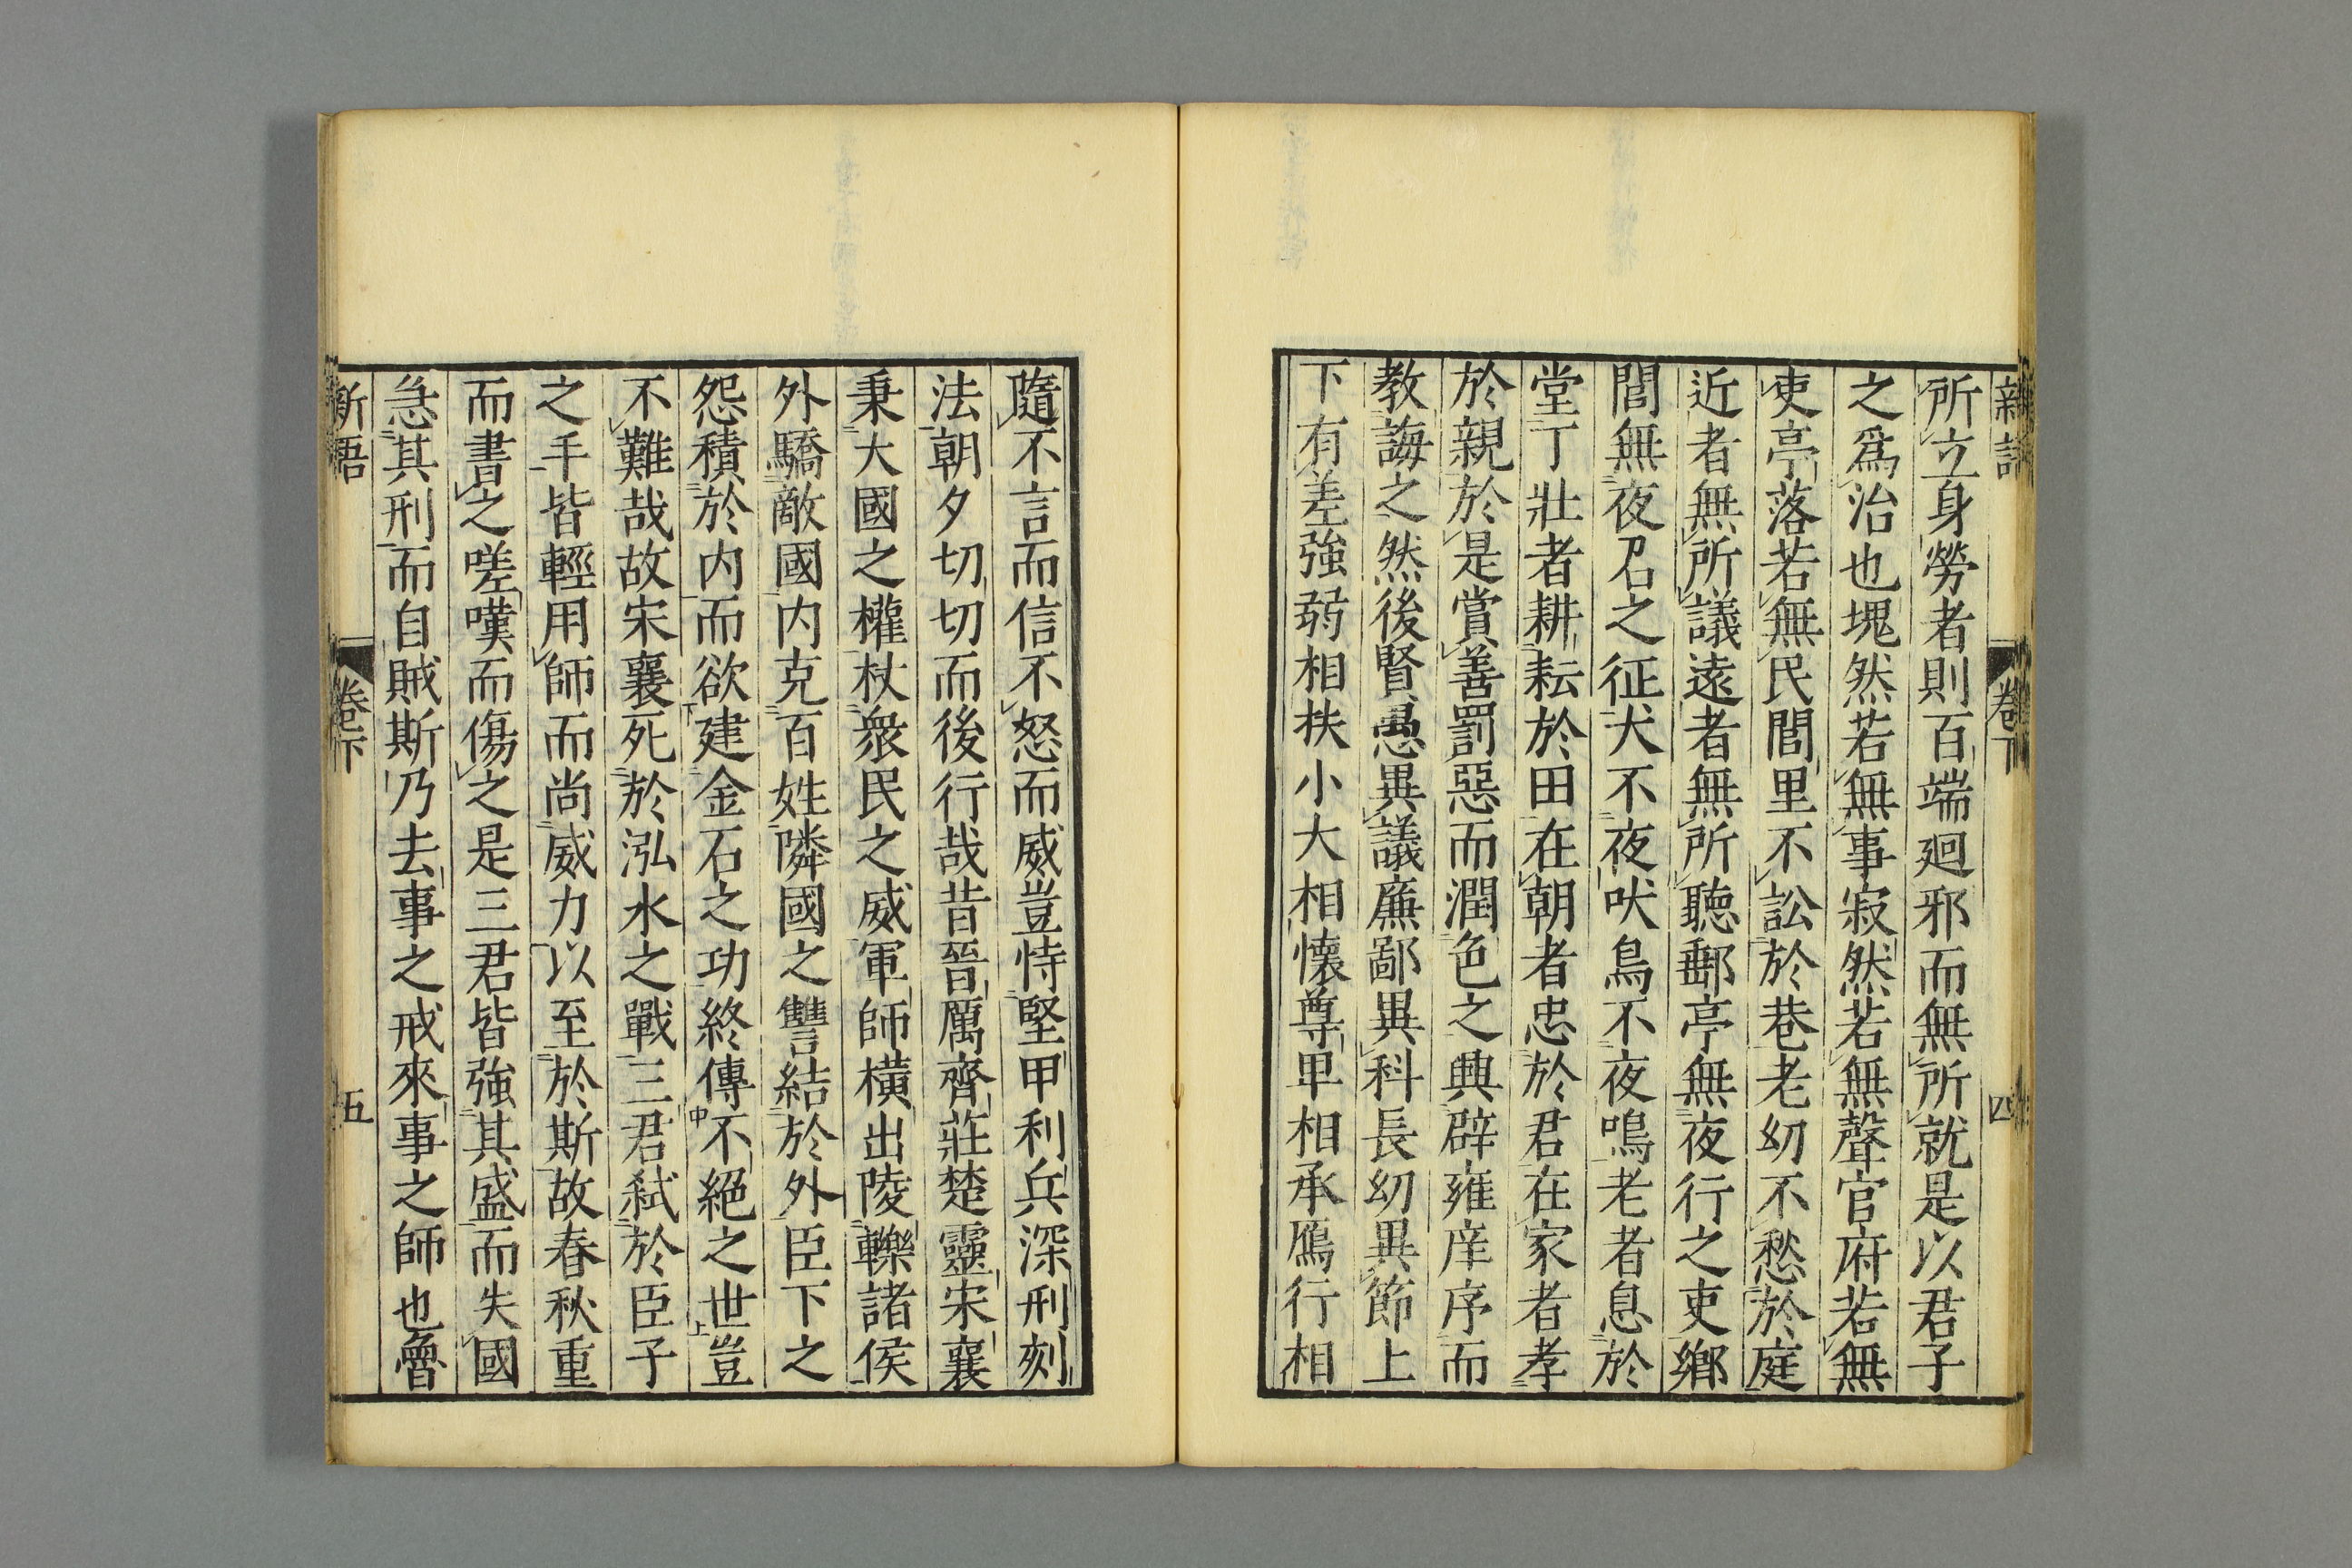 新語 卷下 四
所立身勞者則百端廻邪而無所就是以君子
之爲治也塊然若無事寂然若無聲官府若無
吏亭落若無民閭里不訟於巷老幼不愁於庭
近者無所議遠者無所聽郵亭無夜行之吏鄉
閭無夜召之征犬不夜吠鳥不夜鳴老者息於
堂丁壯者耕耘於田在朝者忠於君在家者孝
於親於是賞善罰惡而潤色之興辟雍庠序而
教誨之然後賢愚異議廉鄙異科長幼異節上
下有差強弱相扶小大相懷尊卑相承鴈行相
隨不言而信不怒而威豈恃堅甲利兵深刑刻
法朝夕切切而後行哉昔晉厲齊莊楚靈宋襄
秉大國之權杖衆民之威軍師橫出陵轢諸侯
外驕敵國内克百姓隣國之讐結於外臣下之
怨積於内而欲建金石之功終傳不絕之世豈
不難哉故宋襄死於泓水之戰三君弑於臣子
之手皆輕用師而尚威力以至於斯故春秋重
而書之嗟嘆而傷之是三君皆強其盛而失國
急其刑而自賊斯乃去事之戒來事之師也魯
新語 卷下 五